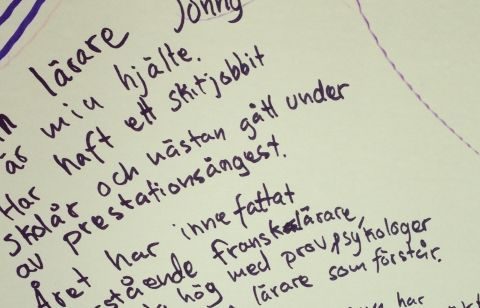 lärare Jonny
är min hjälte.
Har haft ett skitjobbit
skolår och nästan gått under
av prestationsångest.
Året har innefattat
stående fransklärare,
hög med prov, psykologer
lärare som förstår.
har